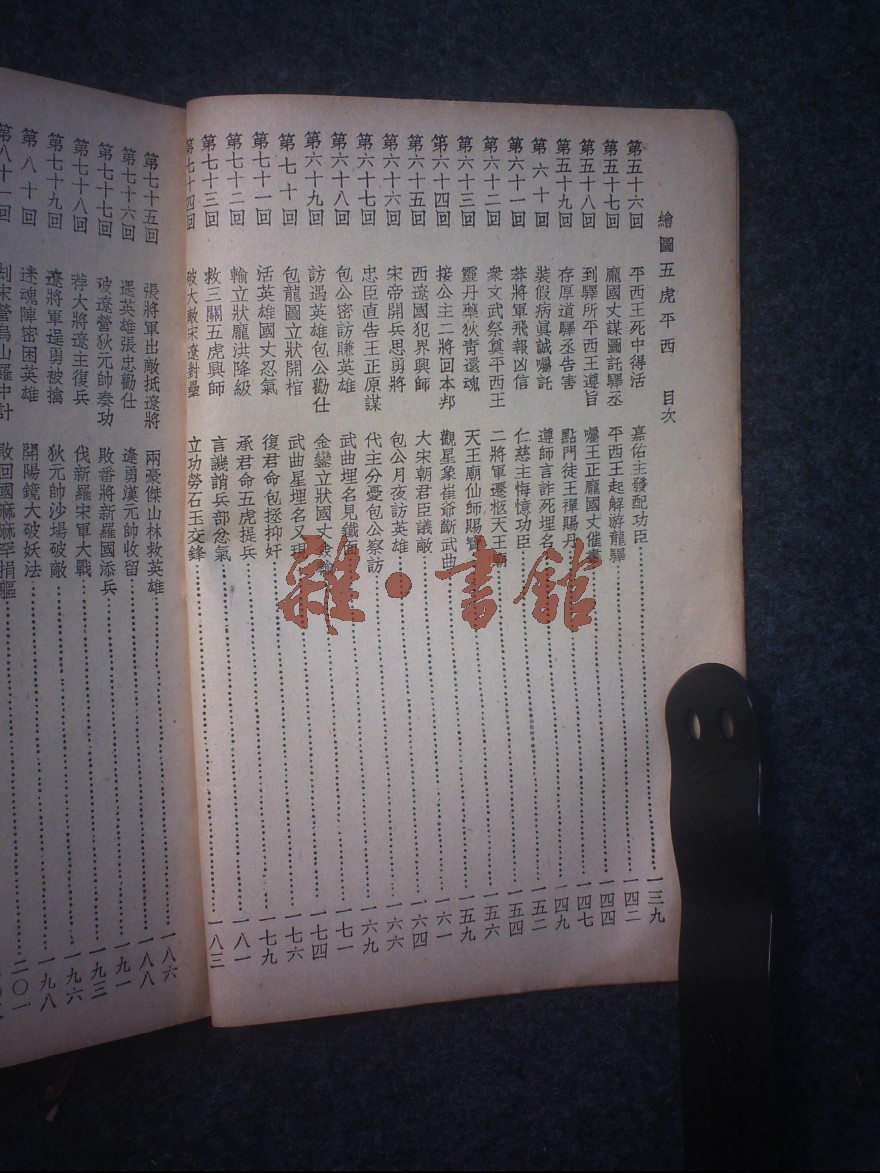 繪圖五虎平西 目次
第五十六回 平西王死中得活 嘉佑主發配功臣 一三九
第五十七回 龐國丈謀圖託驛丞 平西王起解游龍驛 一四二
第五十八回 到驛所平西王遵旨 囑王正龐國丈催書 一四四
第五十九回 存厚道驛丞告害 點門徒王禪賜丹 一四七
第六十回 裝假病眞誠囑託 遵師言詐死埋名 一四九
第六十一回 莽將軍飛報凶信 仁慈主悔憶功臣 一五二
第六十二回 衆文武祭奠平西王 二將軍遷柩天王廟 一五四
第六十三回 靈丹藥狄青還魂 天王廟仙師賜寶 一五六
第六十四回 接公主二將回本邦 觀星象崔爺斷武曲 一五九
第六十五回 西遼國犯界興師 大宋朝君臣議敵 一六一
第六十六回 宋帝開兵思勇將 包公月夜訪英雄 一六四
第六十七回 忠臣直告王正原謀 代主分憂包公察訪 一六六
第六十八回 包公密訪賺英雄 武曲埋名見鐵面 一六九
第六十九回 訪遇英雄包公勸仕 金鑾立狀國丈 一七一
第七十回 包龍圖立狀開棺 武曲星埋名又現 一七四
第七十一回 活英雄國丈忍氣 復君命包拯抑奸 一七六
第七十二回 輸立狀龐洪降級 承君命五虎提兵 一七九
第七十三回 救三關五虎興師 言譏誚兵部忿氣 一八一
第七十四回 破大敵宋遼對壘 立功勞石玉交鋒 一八三
第七十五回 張將軍出敵抵遼將 兩豪傑山林救英雄 一八六
第七十六回 還英雄張忠勸仕 逢勇漢元帥收留 一八八
第七十七回 破遼營狄元帥奏功 敗番將新羅國添兵 一九一
第七十八回 荐大將遼主復兵 伐新羅宋軍大戰 一九三
第七十九回 遼將軍逞勇被擒 狄元帥沙場破敵 一九六
第八十回 迷魂陣密困英雄 開陽鏡大破妖法 一九八
第八十一回 刦宋營烏山羅中計 敗回國麻麻罕捐軀 二〇一
雜·書館